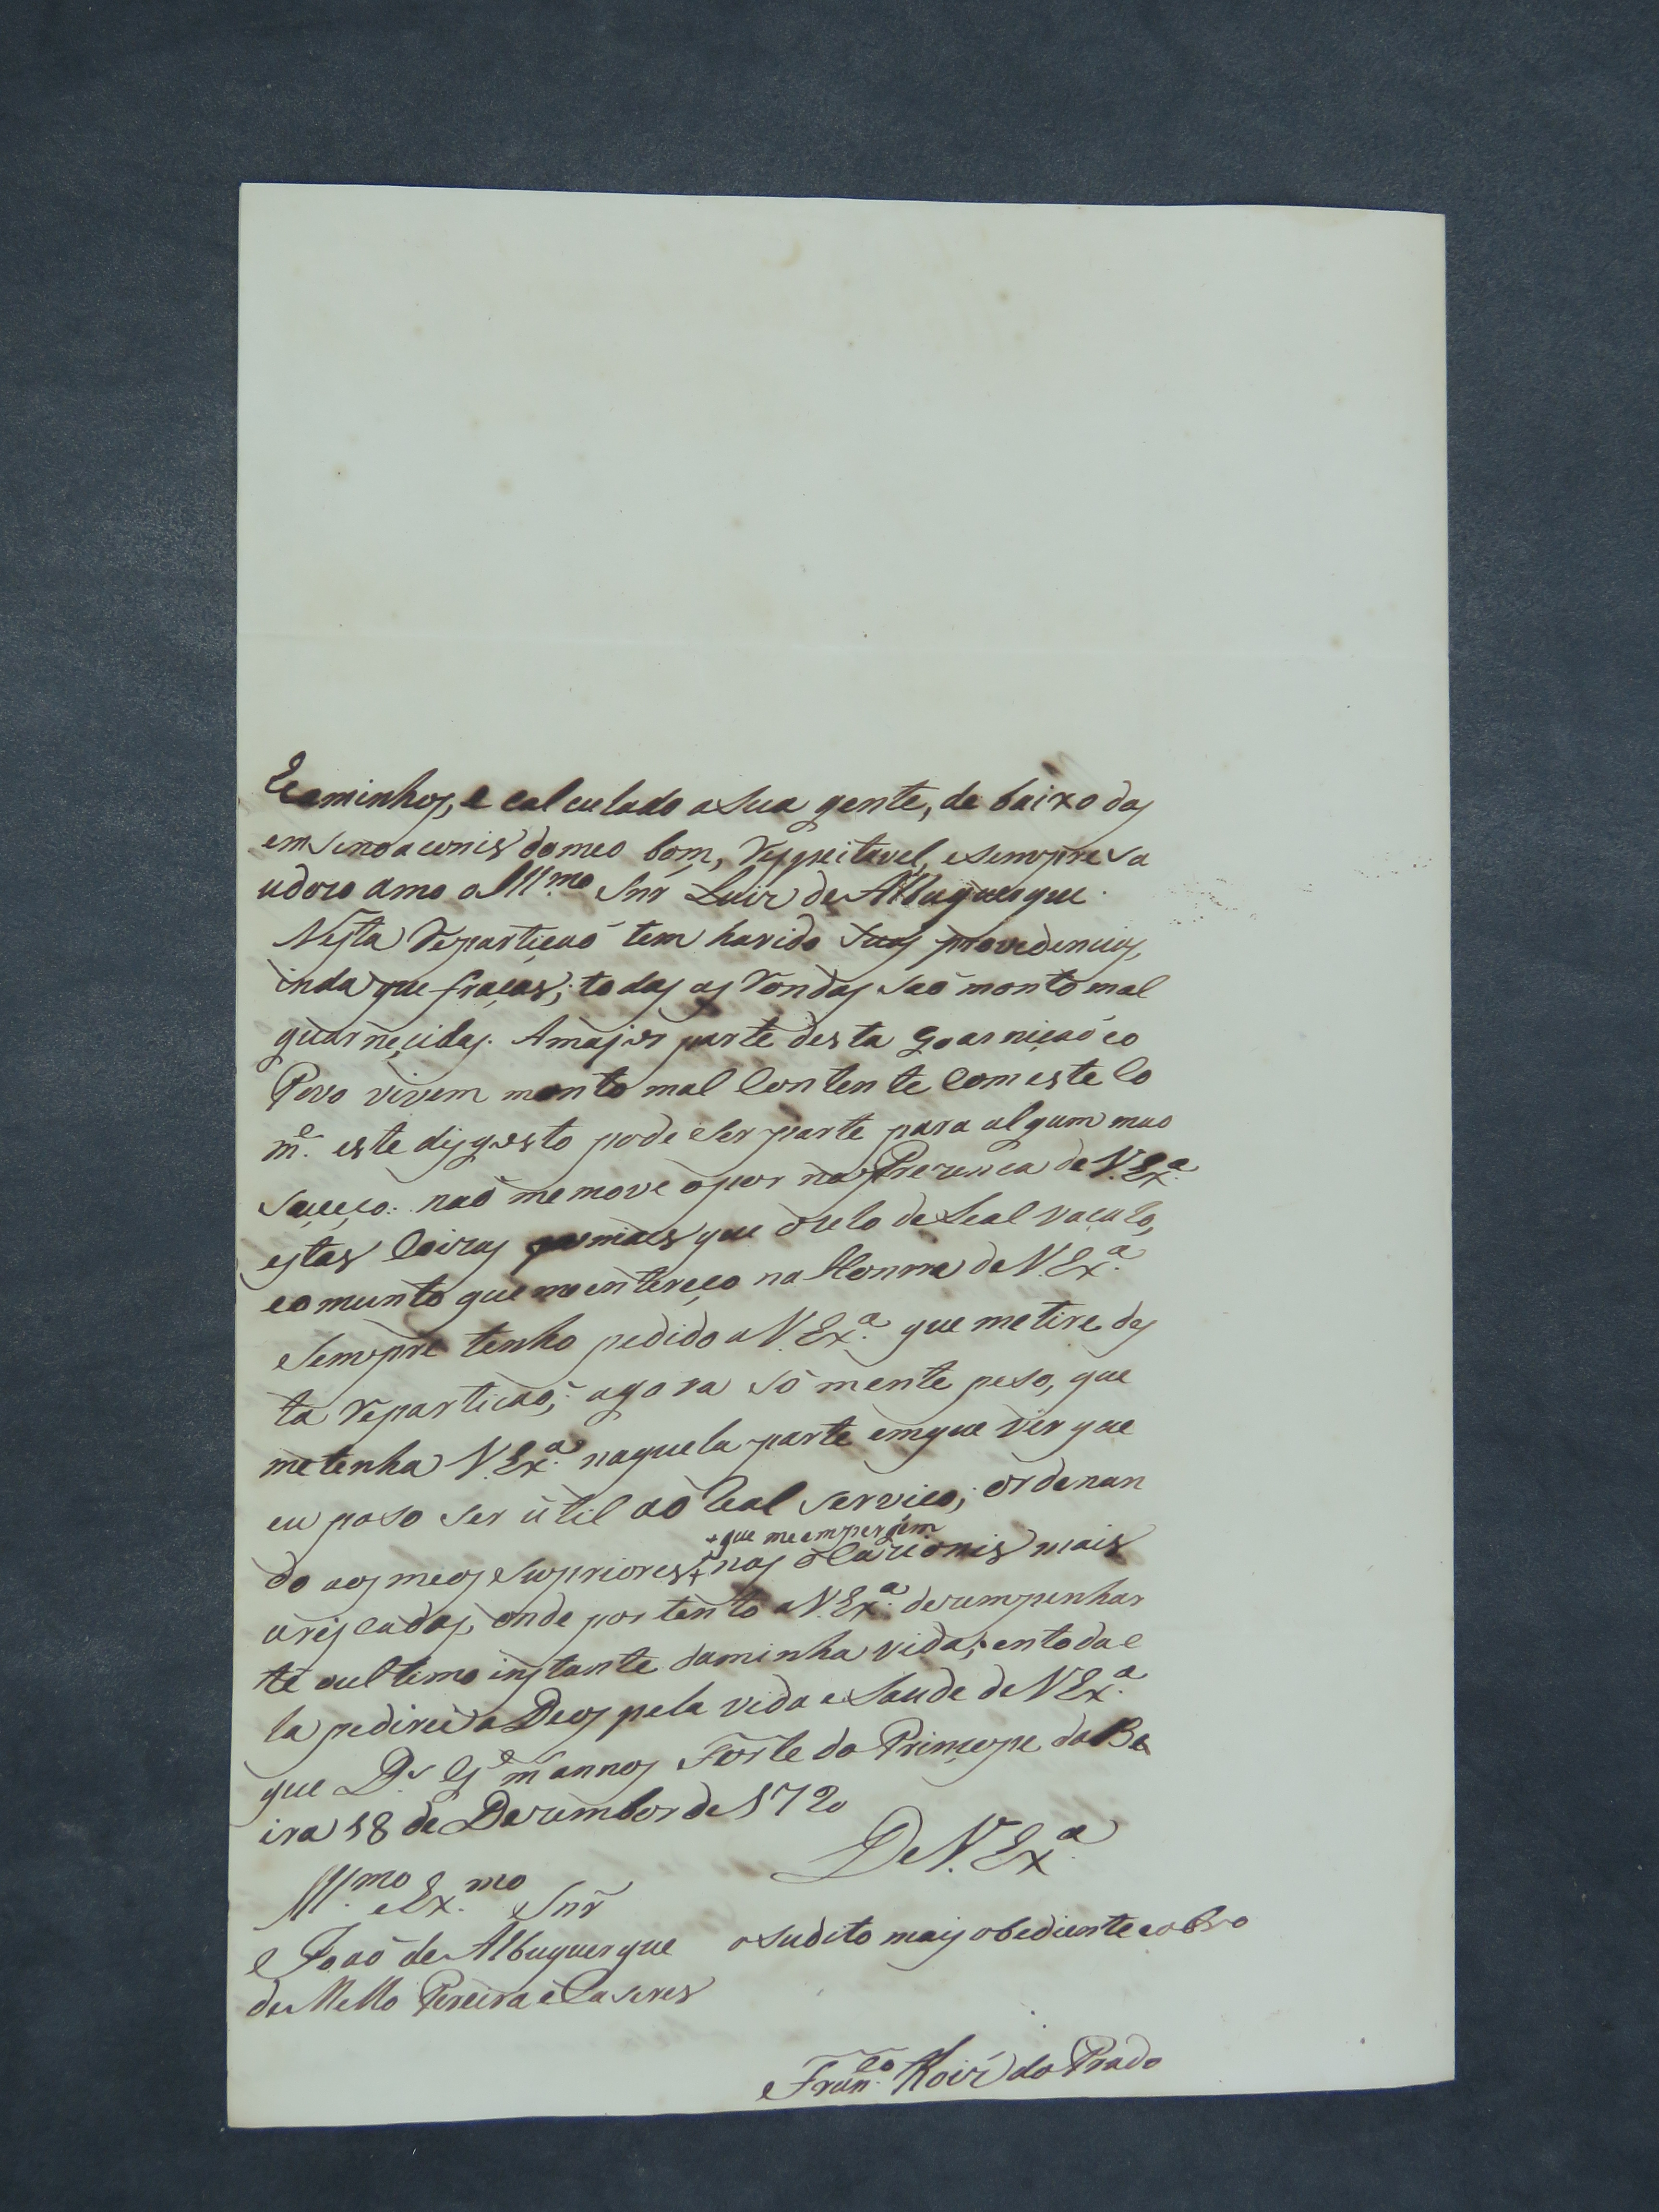 Caminhos, e calculado a Sua gente, de baixo das
emsinoaconis do meo bom, Respeitavel, e sempre sa
udozo amo o Ill.mo Snr Luiz de Albuquerque.
Nesta Repartição tem havido Suas providencias,
inda que fracas; todas as Rondas são monto mal
guarnecidas. A major parte desta Goarnição eo
Povo vivem monto mal Contente Com este Co
m.e este disgosto pode ser parte para algum mao
suceço: não me move a por na Prezença de V. Ex.a
estas Coizas mais que o zelo de Leal vaçalo,
eo munto que me intereço na Honrra de V. Ex.a
Sempre tenho pedido a V. Ex.a que me tire des
ta Repartição; agora só mente peso, que
me tenha V. Ex.a naquela parte em que vir que
eu poso ser util ao Real serviço; ordenan
do aos meos Supriores + nas ocazionis mais
+ que me empergem
arriscadas, onde portento a V. Ex.a dezempenhar
té o ultimo instante da minha vida; en toda e
la pedirei a Deos pela vida e Saude de V Ex.a
que D.s G.e m annos Forte do Principe da Be
ira 18 de Dezembor de 1790
De V. Ex.a
Ill.mo e Ex.mo Snr
João de Albuquerque
o Sudito mais obediente e obro
de Mello Pereira e Caseres
Fran.co Roiz do Prado